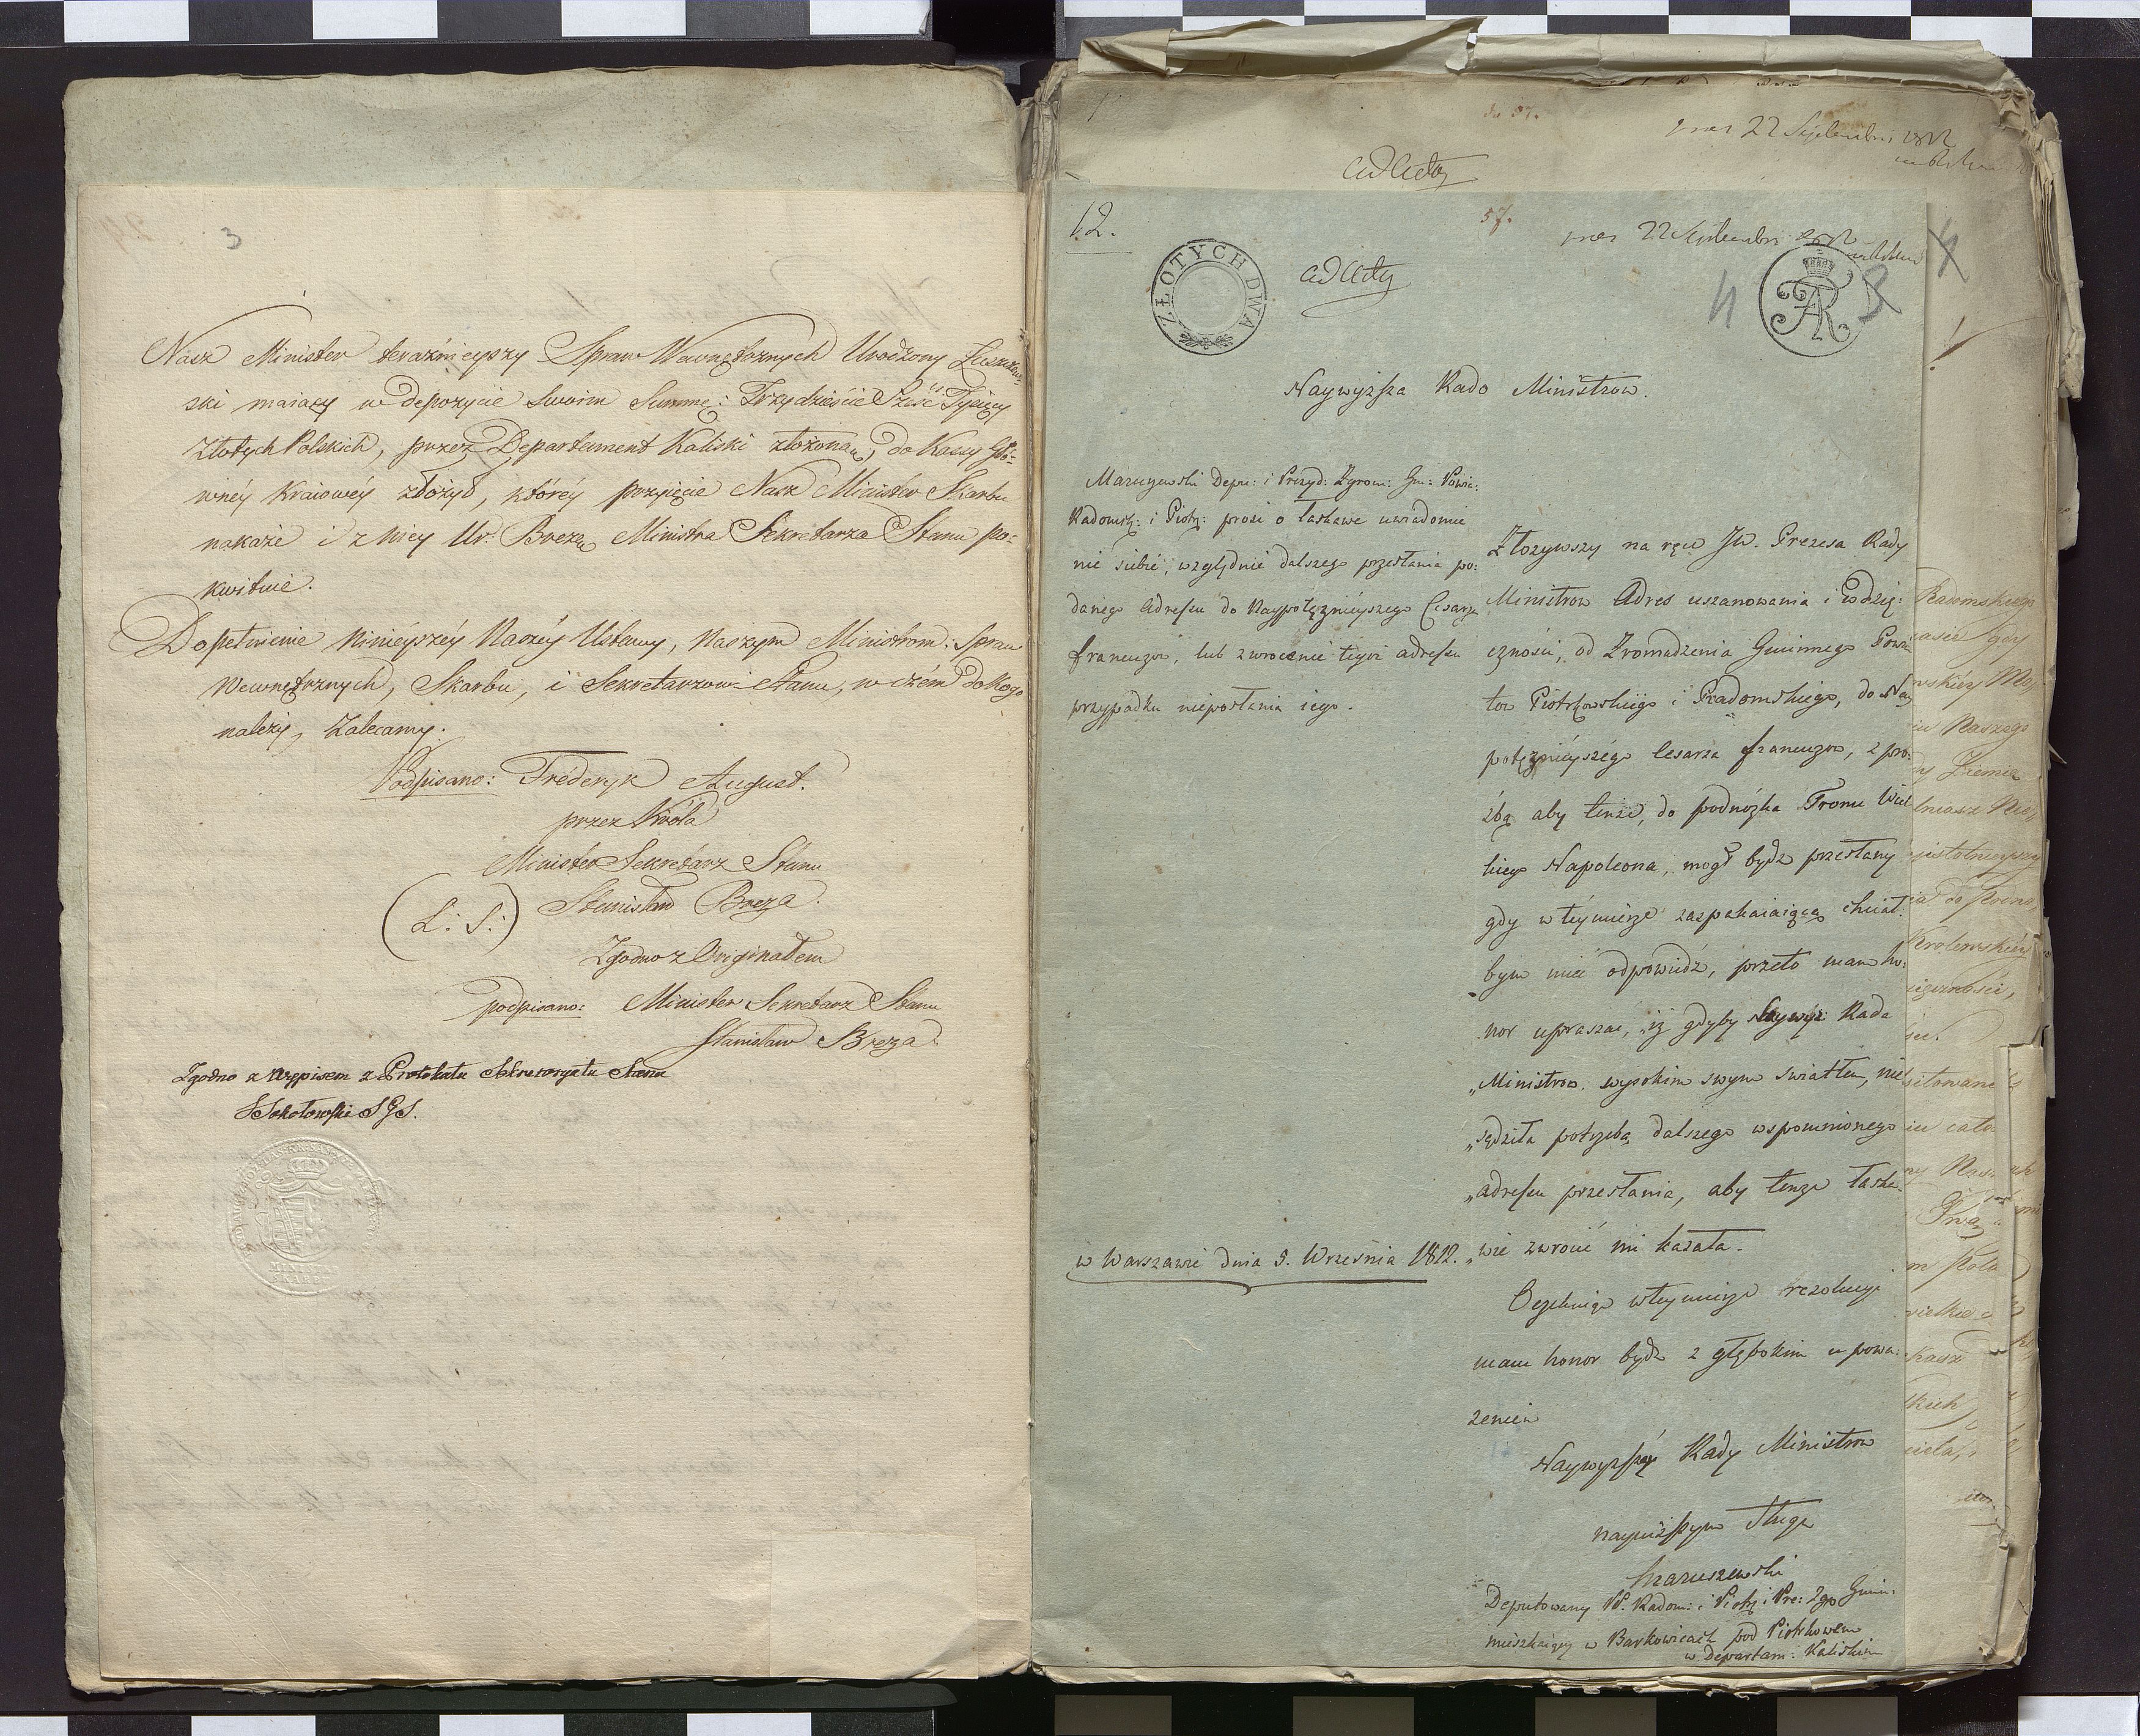 3
Nasz Minister teraźnieyszy Spraw Wewnętrznych Urodzony Łuszczew,
ski maiący w depozycie Swoim Summę: Trzydzieście Sześć Tysięcy
Złotych Polskich, przez Departament Kaliski złożoną, do Kassy Głó=
wnéy Kraiowéy złożył, któréy przyięcie Nasz Minister Skarbu
nakaże i z niéy Ur. Brezę Ministra Sekretarza Stanu po=
kwituie.
Dopełnienie Ninieyszéy Naszéy Ustawy, Naszym Ministrom: Spraw
Wewnętrznych, Skarbu, i Sekretarzowi Stanu, w czém do Kogo
należy, zalecamy.
Podpisano: Fréderyk August.
przez Króla
Minister Sekretarz Stanu
(L: S:) Stanisław Breza.
Zgodno z Originałem
podpisano: Minister Sekretarz Stanu
Stanisław Breza
Zgodno z Wypisem z Protokułu Sekretaryatu Stanu
Sokołowski S J S.
22 Septembri 1812
ad acta
12.
57.
22 Septembri 1812
ZŁOTYCH DWA
ad acta
FAR
Naywyższa Rado Ministrow.
Maruszewski Depu: i Prezyd: Zgrom: Gm: Powia:
Radomsk: i Piotrk: prosi o łaskawe uwiadomie
nie siebie, względnie dalszego przesłania po:
danego Adressu do Naypotężnieyszego Cesarza
francuzow, lub zwrocenie tegoż adressu
przypadku nieposłania iego.
w Warszawie dnia 9. Września 1812.
Złożywszy na ręce JW. Prezesa Rady
Ministrow Adres uszanowania i wdzię:
czności, od Zromadzenia Gminnego Powia
tow Piotrkowskiego i Radomskiego, do Nay
potężnieyszégo Cesarza francuzow, z pro:
źbą aby tenże, do podnóżka Tronu Wiel
kiego Napoleona, mogł bydź przesłany
gdy w teymierze zaspakaiaiącą chciał:
bym mieć odpowiedź, przeto mam ho:
nor upraszać, iż gdyby Naywyż: Rada
„Ministrow wysokim swym swiatłem, nie
„sądziła potrzebą dalszego wspomnionego
„adressu przesłania, aby tenże łaska:
„wie zwrocić mi kazała.
Oczekuiąc w teymierze rezolucyi
mam honor bydź z głębokim u powa:
żeniem
Naywyższéy Rady Ministrow
nayniższym Sługą
Maruszewski
Deputowany PP. Radom: i Piotrk: i Pre: Zgo Gmin:
mieszkaiący w Barkowicach pod Piotrkowem
w Departam: Kaliskim